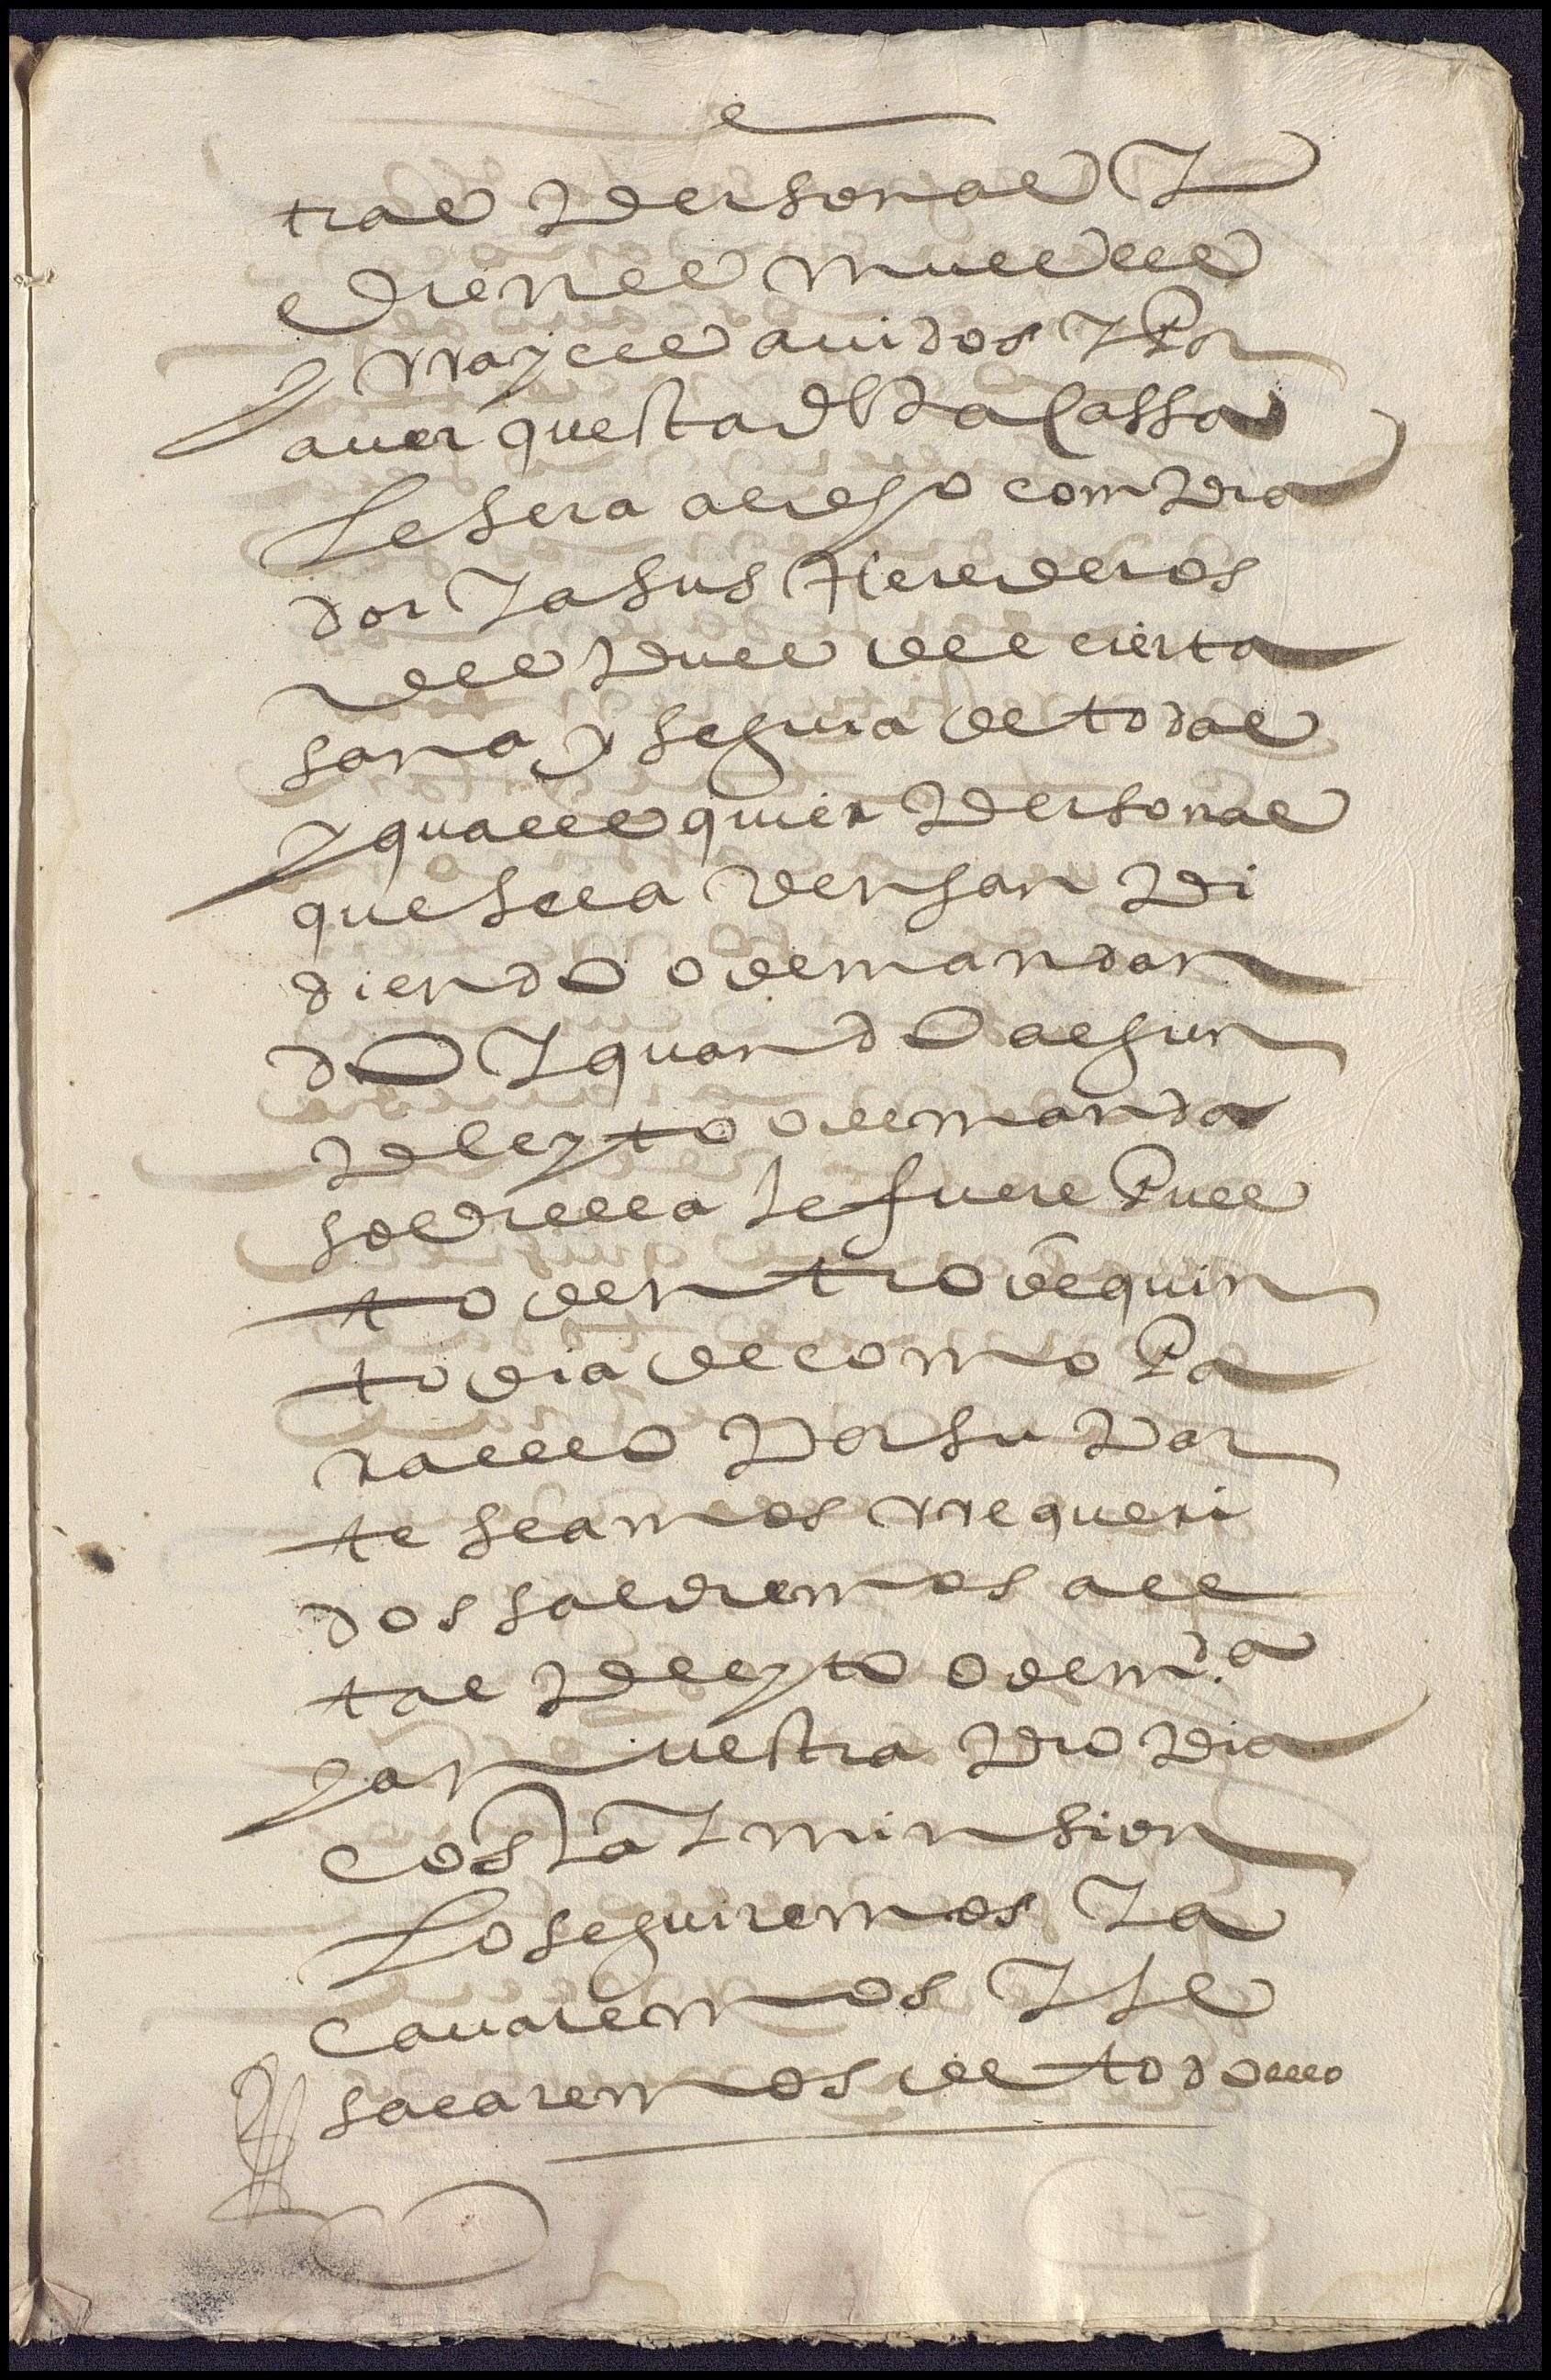 tras personas y
Vienes muebles
y rrayces auidos y por
auer questa dha cassa
le sera al dho compra
dor y a sus herederos
des pues del cierta
sana y segura de todas
y qualesquier personas
que se la vengan pi
diendo o demandan
do y quando algun
pleyto o demanda
sobre ella le fuere pues
to dentro de quin
to dia de como pa
ra ello por su par
te seamos rrequeri
dos saldremos a el
tal pleyto o demda
y a nuestra propia
costa y minsion
lo seguiremos y a
cauaremos y le
sacaremos de todo ello